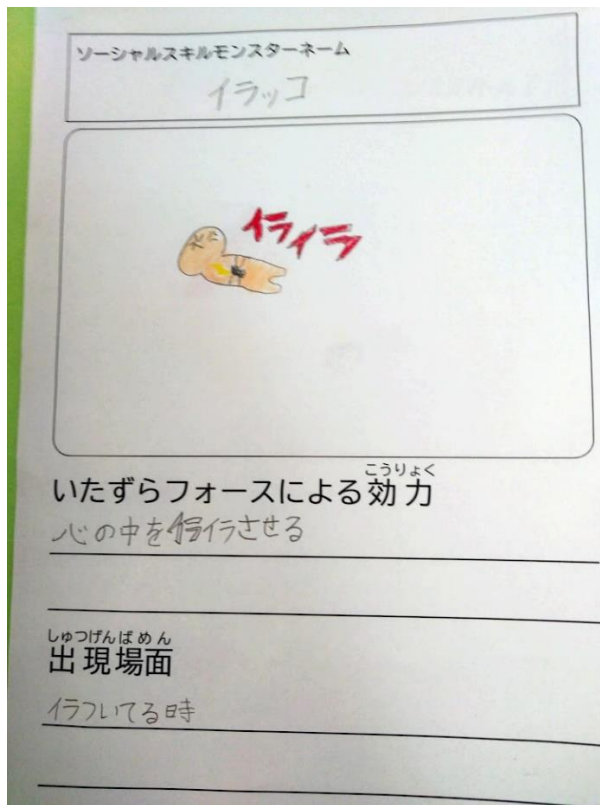 ソーシャルスキルモンスターネーム
イラッコ
イライラ
いたずらフォースによる効力
こうりょく
心の中をイライラさせる
出現場面
しゅつげんばめん
イラついてる時